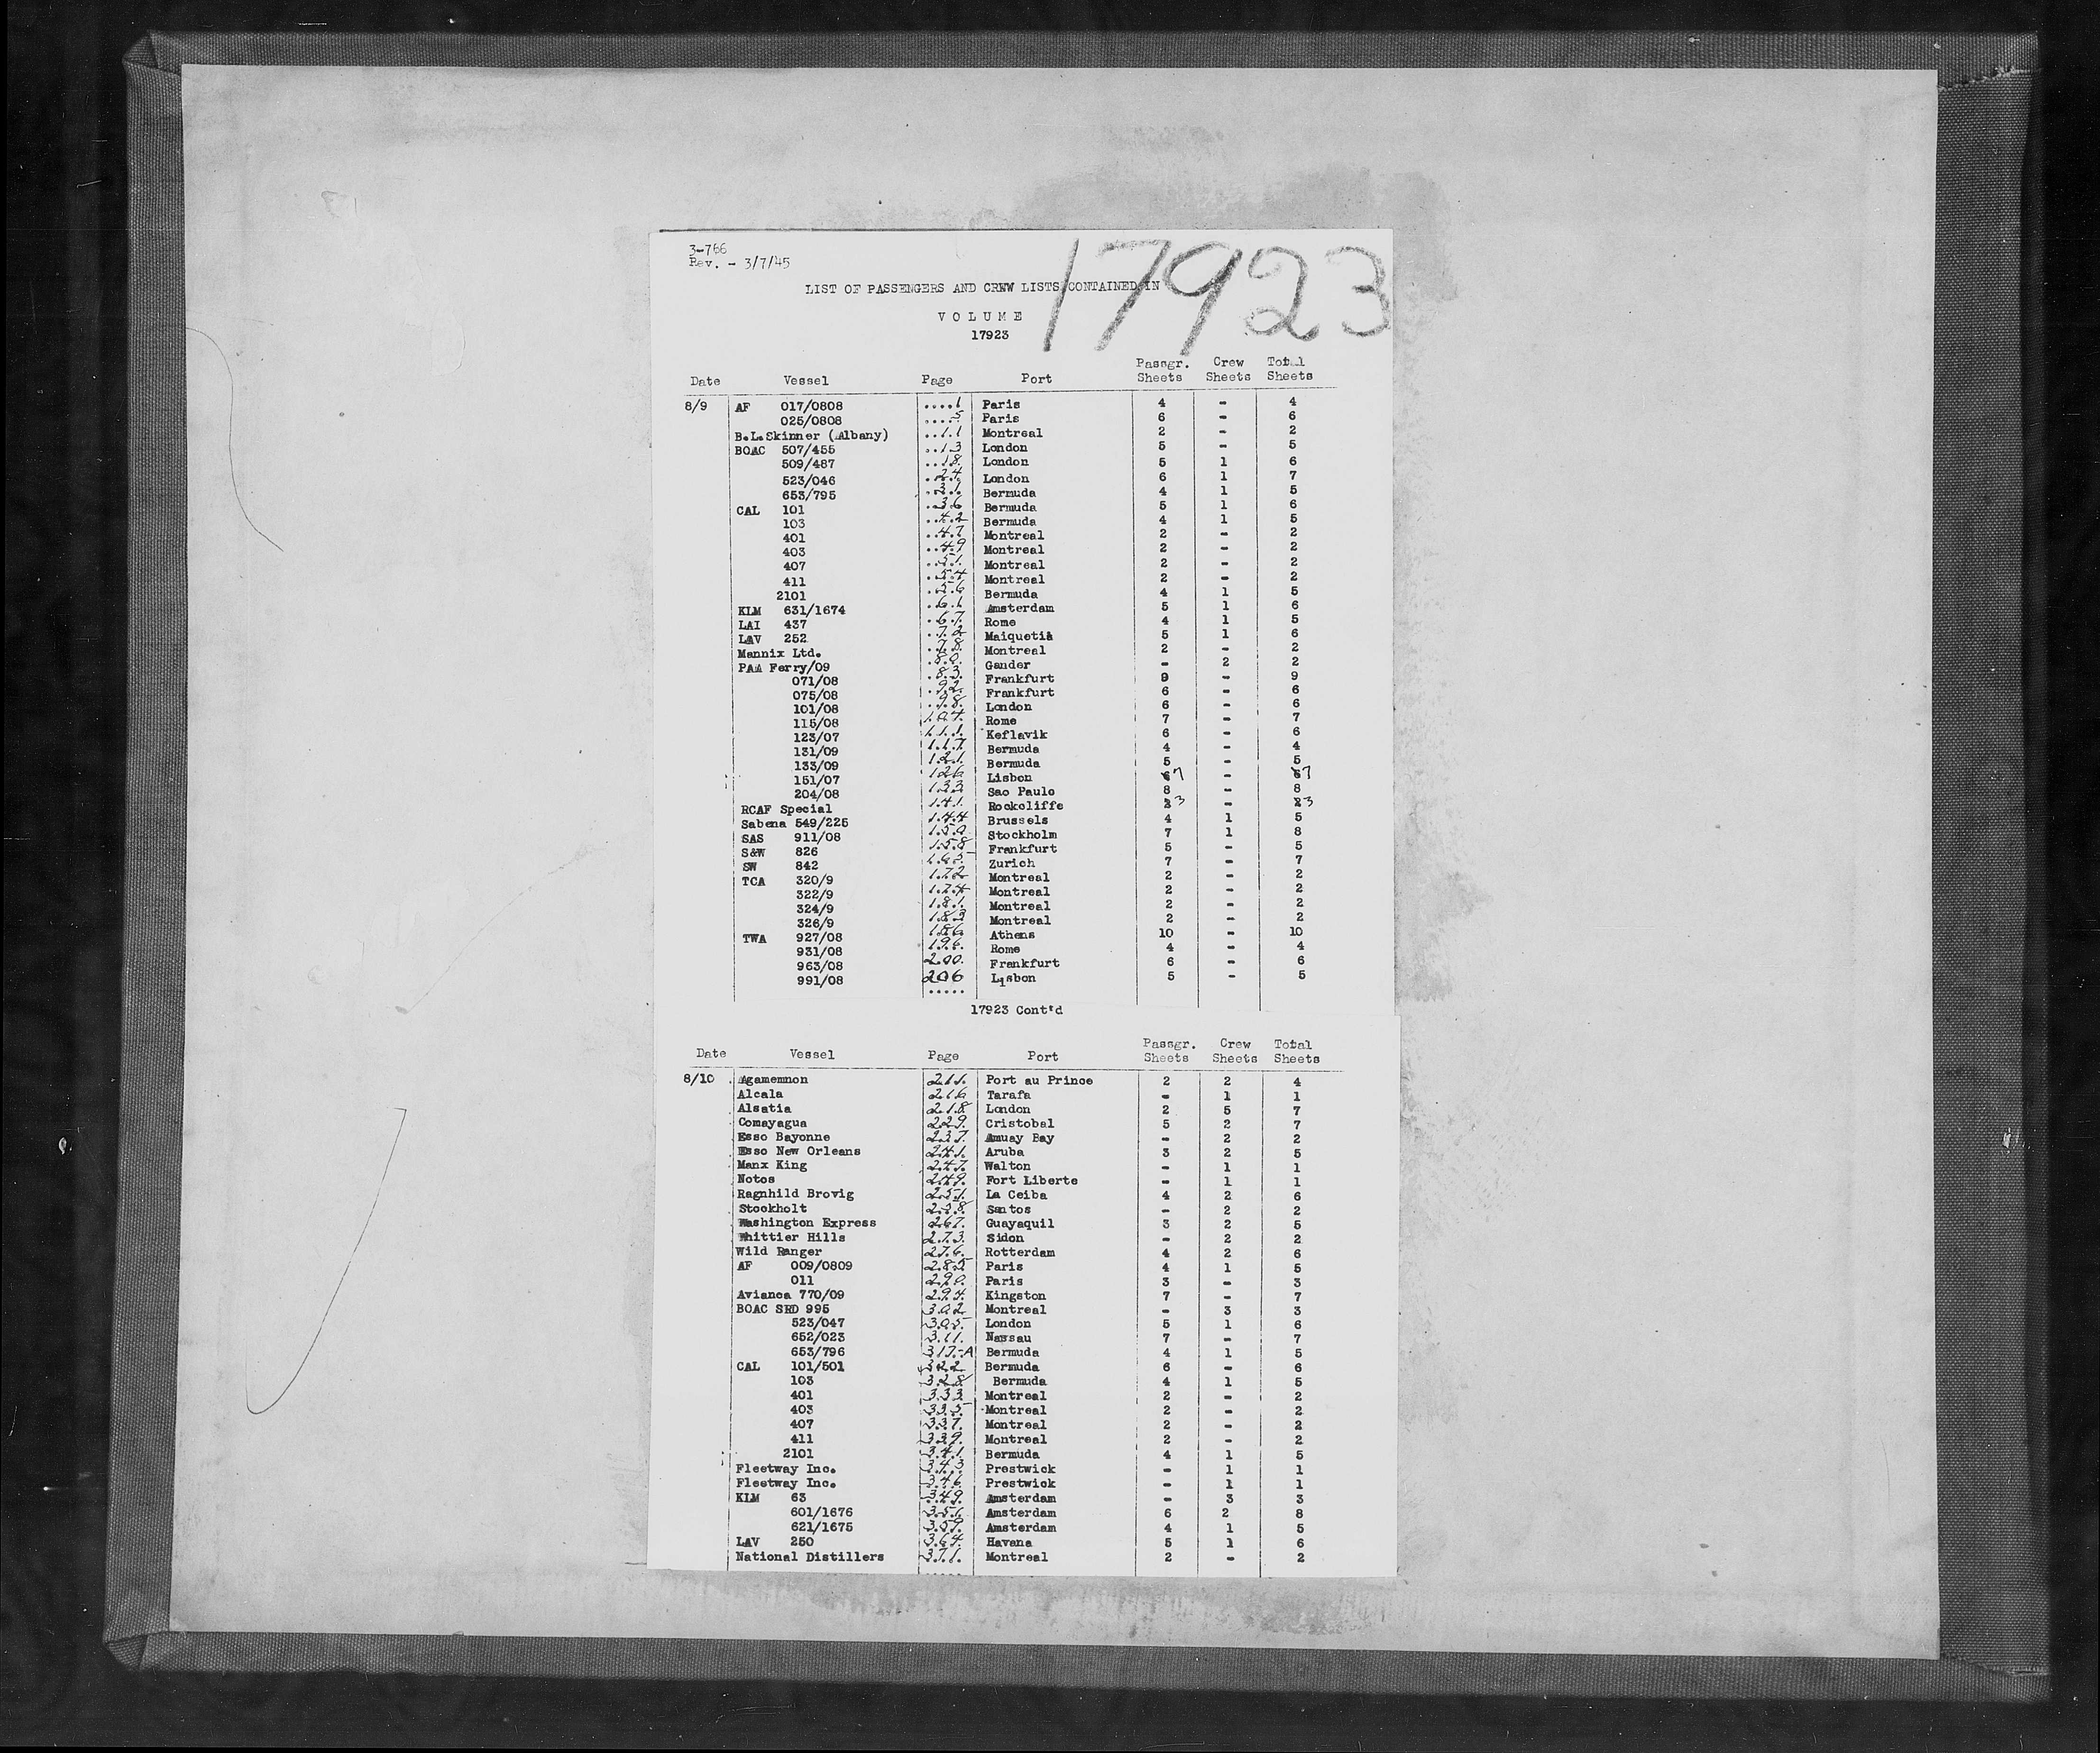 3-766
Rev. - 3/7/45
17923
LIST OF PASSENGERS AND CREW LISTS CONTAINED IN
VOLUME
17923
Date Vessel Page Port Passgr. Sheets Crew Sheets Total Sheets
8/9 AF 017/0808 ....1 Paris 4 - 4
025/0808 ....5 Paris 6 - 6
B.L.Skinner (Albany) ..11 Montreal 2 - 2
BOAC 507/455 ..13 London 5 - 5
509/487 ..18. London 5 1 6
523/046 .24. London 6 1 7
653/795 .31. Bermuda 4 1 5
CAL 101 ..36 Bermuda 5 1 6
103 ..42 Bermuda 4 1 5
401 ..47 Montreal 2 - 2
403 ..49 Montreal 2 - 2
407 ..51. Montreal 2 - 2
411 .54 Montreal 2 - 2
2101 .56 Bermuda 4 1 5
KLM 631/1674 .61 Amsterdam 5 1 6
LAI 437 .67. Rome 4 1 5
LAV 252 .72 Maiquetia 5 1 6
Mannix Ltd. .78. Montreal 2 - 2
PAA Ferry/09 .80. Gander - 2 2
071/08 .83. Frankfurt 9 - 9
075/08 .92. Frankfurt 6 - 6
101/08 .98. London 6 - 6
115/08 104. Rome 7 - 7
123/07 111. Keflavik 6 - 6
131/09 117. Bermuda 4 - 4
133/09 121. Bermuda 5 - 5
151/07 126 Lisbon 6 7 - 6 7
204/08 133 Sao Paulo 8 - 8
RCAF Special 141. Rockcliffe 2 3 - 2 3
Sabena 549/225 144 Brussels 4 1 5
SAS 911/08 150 Stockholm 7 1 8
S&W 826 158 Frankfurt 5 - 5
SW 842 165. Zurich 7 - 7
TCA 320/9 172 Montreal 2 - 2
322/9 174 Montreal 2 - 2
324/9 181. Montreal 2 - 2
326/9 183 Montreal 2 - 2
TWA 927/08 186 Athens 10 - 10
931/08 196. Rome 4 - 4
963/08 200. Frankfurt 6 - 6
991/08 206 Lisbon 5 - 5
.....
17923 Cont'd
Date Vessel Page Port Passgr. Sheets Crew Sheets Total Sheets
8/10 Agamemnon 211. Port au Prince 2 2 4
Alcala 216 Tarafa - 1 1
Alsatia 218. London 2 5 7
Comayagua 229. Cristobal 5 2 7
Esso Bayonne 237. Amuay Bay - 2 2
Esso New Orleans 241. Aruba 3 2 5
Manx King 247. Walton - 1 1
Notos 249. Fort Liberte - 1 1
Ragnhild Brovig 251. La Ceiba 4 2 6
Stockholt 258. Santos - 2 2
Washington Express 267. Guayaquil 3 2 5
Whittier Hills 273. Sidon - 2 2
Wild Ranger 276. Rotterdam 4 2 6
AF 009/0809 285 Paris 4 1 5
011 290. Paris 3 - 3
Avianca 770/09 294. Kingston 7 - 7
BOAC SRD 995 302 Montreal - 3 3
523/047 305 London 5 1 6
652/023 311. Nassau 7 - 7
653/796 317-A Bermuda 4 1 5
CAL 101/501 322 Bermuda 6 - 6
103 328 Bermuda 4 1 5
401 333 Montreal 2 - 2
403 335 Montreal 2 - 2
407 337. Montreal 2 - 2
411 339. Montreal 2 - 2
2101 341 Bermuda 4 1 5
Fleetway Inc. 343 Prestwick - 1 1
Fleetway Inc. 346 Prestwick - 1 1
KLM 63 349. Amsterdam - 3 3
601/1676 351. Amsterdam 6 2 8
621/1675 359. Amsterdam 4 1 5
LAV 250 364. Havana 5 1 6
National Distillers 371. Montreal 2 - 2